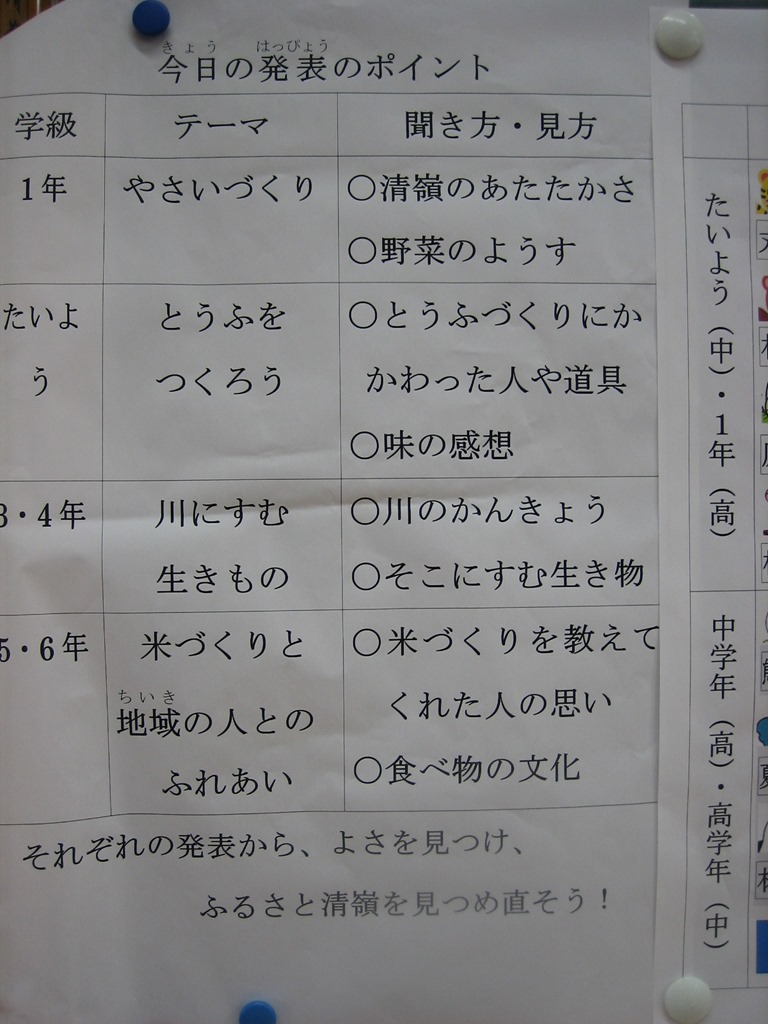 きょう はっぴょう
今日の発表のポイント
学級 テーマ 聞き方・見方
1年 やさいづくり ○清嶺のあたたかさ
○野菜のようす
たいよ とうふを ○とうふづくりにか
う つくろう かわった人や道具
○味の感想
3・4年 川にすむ ○川のかんきょう
生きもの ○そこにすむ生き物
5・6年 米づくりと ○米づくりを教えて
ちいき
地域の人との くれた人の思い
ふれあい ○食べ物の文化
それぞれの発表から、よさを見つけ、
ふるさと清嶺を見つめ直そう！
たいよう（中）・1年（高）
中学年（高）・高学年（中）